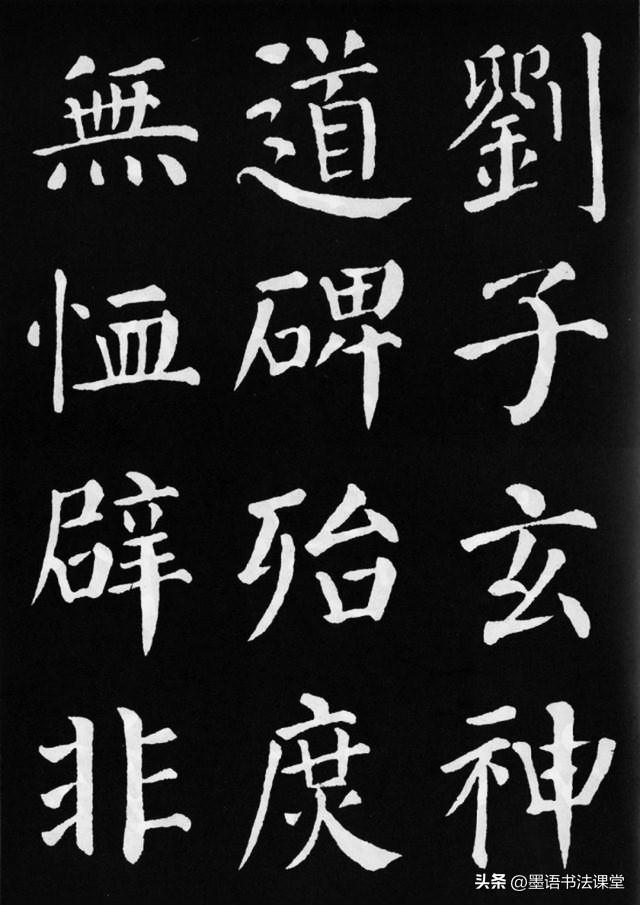 劉子玄神
道碑殆庶
無恤辟非
头条 @墨语书法课堂